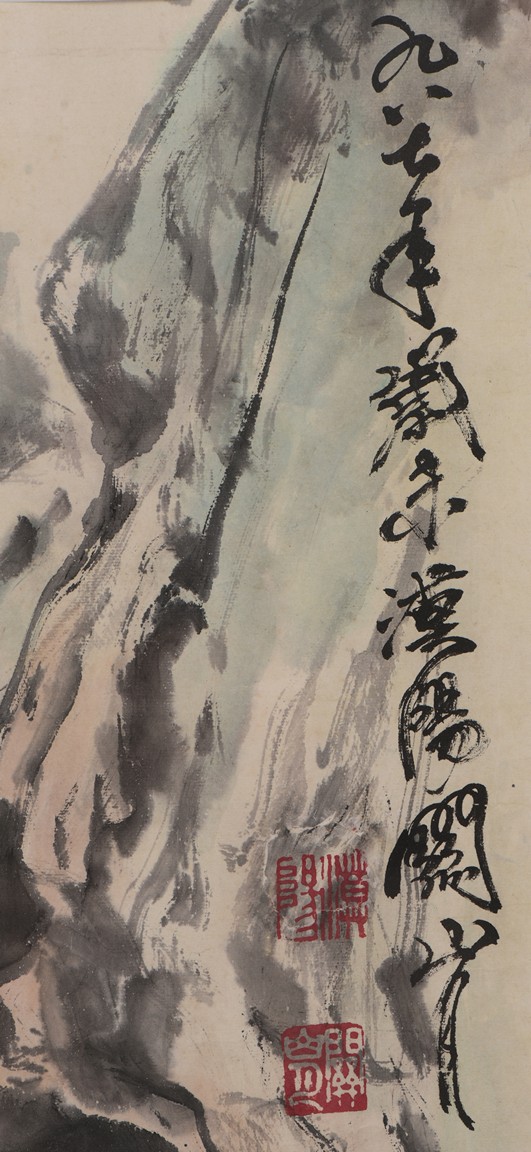 九八七年歲末漢陽關山月
漢陽
關山月